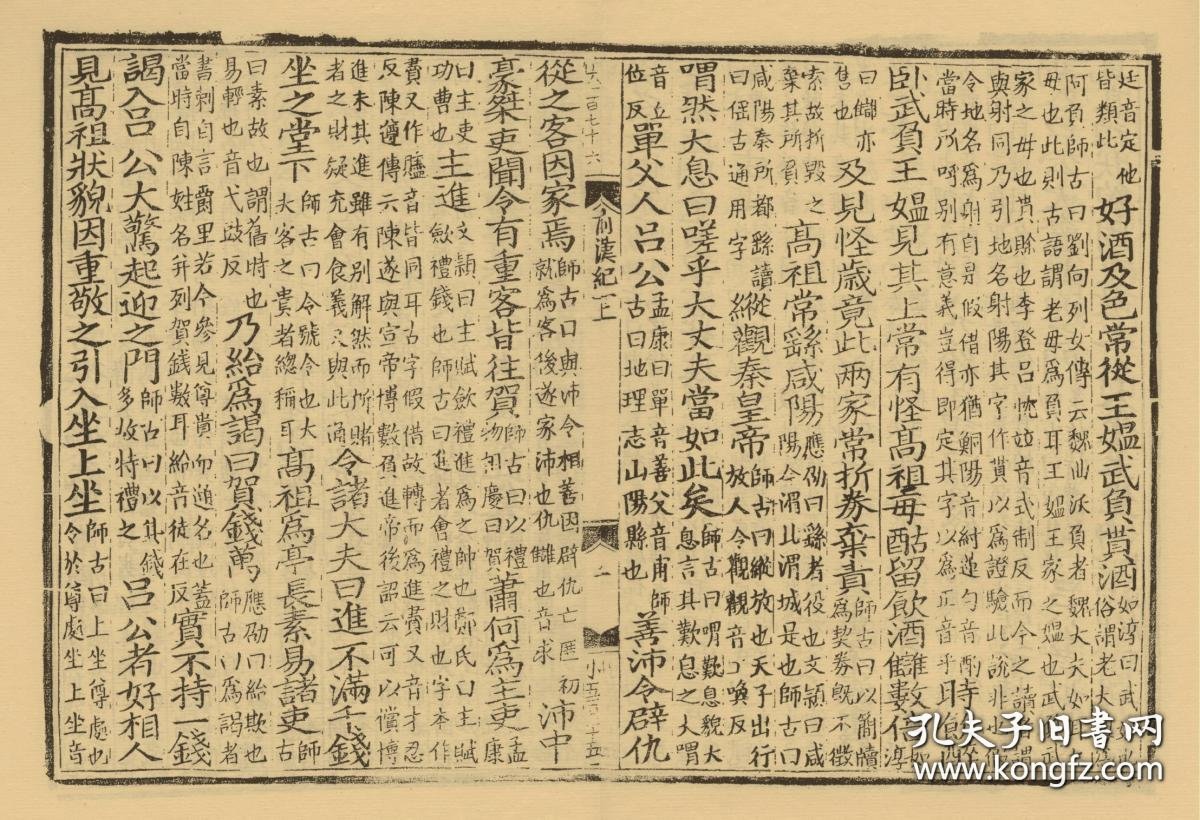 廷音定他皆類此好酒及色常從王媼武負貰酒如淳曰武俗謂老大
阿負師古曰劉向列女傳云魏曲沃負者魏大夫如
毋也此則古語謂老毋為負耳王媼王家之媼也武武
家之毋也貰賖也李登呂忱竝音式制反而今之讀謂
與射同乃引地名射陽其字作貰以為證驗此說非
令地名為射自是假借亦猶鮦陽音紂蓮勺音酌當時所呼別有意義豈得即定其字以為正音乎時
臥武負王媼見其上常有怪高祖每酤留飲酒讎數倍如淳
曰讎亦售也及見怪歲竟此兩家常折券棄責師古曰以簡牘為契券既不徵
索故折毀之棄其所負高祖常繇咸陽應劭曰繇者役也文穎曰咸陽今渭北渭城是也師古曰
咸陽秦所都繇讀曰傜古通用字縱觀秦皇帝師古曰縱放也天子出行放人令觀觀音工喚反
喟然大息曰嗟乎大丈夫當如此矣師古曰喟歎息貌大息言其歎息之大喟
音丘位反單父人呂公孟康曰單音善父音甫師古曰地理志山陽縣也善沛令辟仇
大一百七十六
前漢紀一上
二
小五百十五
從之客因家焉師古曰與沛令相善因辟仇亡匿初就為客後遂家沛也仇讎也音求沛中
豪桀吏聞令有重客皆往賀師古曰以禮物相慶曰賀蕭何為主吏孟康
曰主吏功曹也主進文穎曰主賦斂禮進為之帥也鄭氏曰主賦斂禮錢也師古曰進者會禮之財也字本作
賮又作贐音皆同耳古字假借故轉而為進賮又音才忍反陳遵傳云陳遂與宣帝博數負進帝後詔云可以償博
進未其進雖有別解然而所賭者之財疑充會食義又與此通令諸大夫曰進不滿千錢
坐之堂下師古曰令號令也大夫客之貴者總稱耳高祖為亭長素易諸吏師古
曰素故也謂舊時也易輕也音弋豉反乃紿為謁曰賀錢萬應劭曰紿欺也師古曰為謁者
書刺自言爵里若今參見尊貴而通名也蓋當時自陳姓名并列賀錢數耳紿音徒在反實不持一錢
謁入呂公大驚起迎之門師古曰以其錢多故特禮之呂公者好相人
見高祖狀貌因重敬之引入坐上坐師古曰上坐尊處也令於尊處坐上坐音
孔夫子旧书网
www.kongfz.com